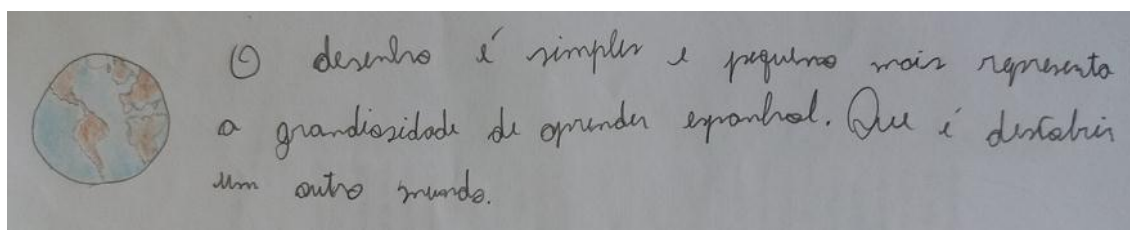 O desenho é simples e pequeno mais representa
a grandiosidade de aprender espanhol. Que é descobrir
um outro mundo.